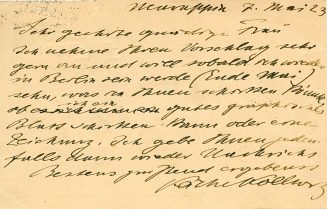 Neuruppin 7. Mai 23
Sehr geehrte gnädige Frau
Ich nehme Ihren Vorschlag sehr
gern an und will sobald ich wieder
in Berlin sein werde (Ende Mai)
sehn, was ich Ihnen schicken könnte,
ob ich ein gutes graphisches
Blatt schicken kann oder eine
Zeichnung. Ich gebe Ihnen jeden
falls dann wieder Nachricht
Bestens grüssend ergebenst
Käthe Kollwitz